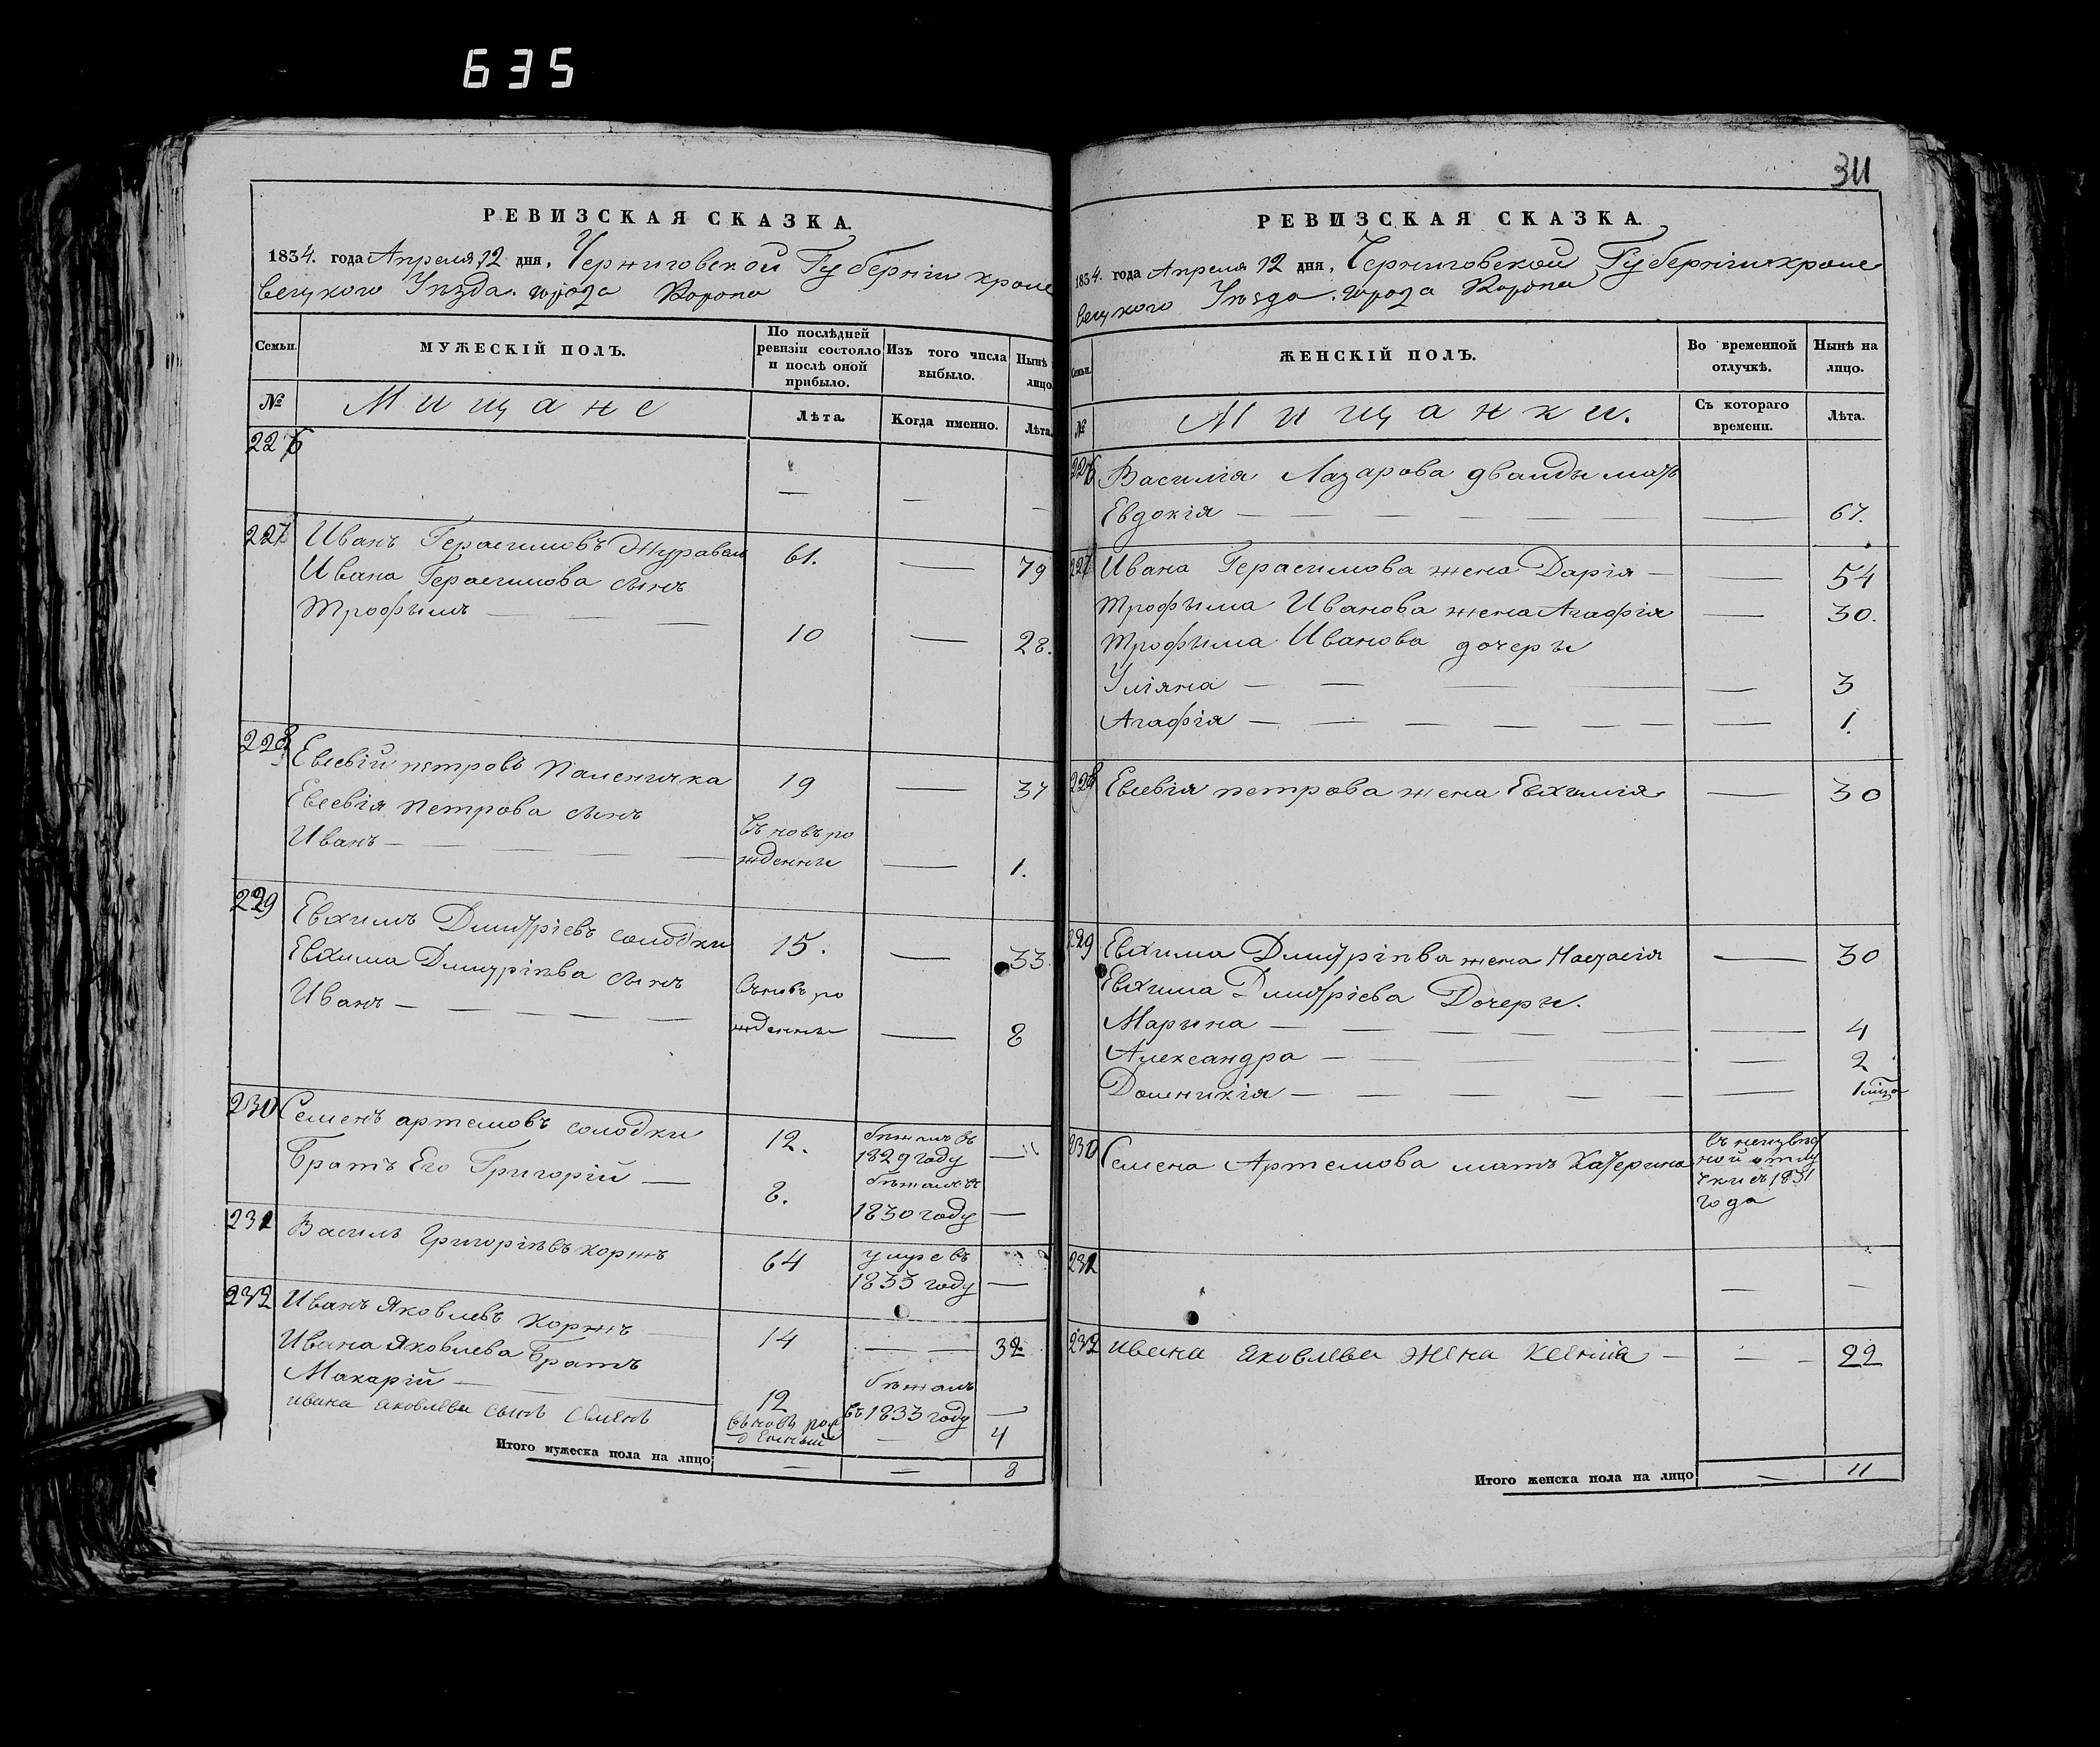 635
РЕВИЗСКАЯ СКАЗКА.
1834. года Апреля 12 дня. Черниговской Губернiи кроле
вецкого Уѣзда. города Коропа
Семьи.
МУЖЕСКIЙ ПОЛЪ.
По послѣдней ревизiи состояло и послѣ оной прибыло.
Изъ того числа выбыло.
Нынѣ
лицо.
№
Мищане
Лѣта.
Когда именно.
Лѣта.
226
— — —
227 Иванъ Герасимовъ Журавель 61. — 79
Ивана Герасимова сынъ
Трофымъ — — — 10 — 28.
228 Евсевiй петровъ Паленичка 19 — 37
Евсевiя Петрова сынъ
Иванъ — — — — — въ новъ ро
жденны — 1.
229 Евхимъ Димитрiевъ солодки 15. — 33.
Евхима Димитрiева сынъ
Иванъ — — — — — въ новъ ро
жденны — 8
230 Семенъ артемовъ солодки 12. бѣжалъ въ
1829 году —
Братъ Его Григорiй — 8. бѣжалъ въ
1830 году —
231 Василь Григорiевъ коржъ 64 умре въ
1833 году —
232 Иванъ Яковлевъ коржъ 14 — — 32
Ивана Яковлева братъ
Макарiй — — — 12 бѣжалъ
въ 1833 году —
ивана яковлева сынъ семенъ въ новь рож
денный — — 4
Итого мужеска пола на лицо — — 8
311
РЕВИЗСКАЯ СКАЗКА.
1834. года Апреля 12 дня. Черниговской Губернiи кроле
вецкого Уѣзда. города Коропа
Семьи.
ЖЕНСКIЙ ПОЛЪ.
Во временной отлучкѣ.
Нынѣ на лицо.
№
Мищанки.
Съ котораго времени.
Лѣта.
226 Василiя Лазарова мать
Евдокiя — — — — — — 67.
227 Ивана Герасимова жена Дарiя — — 54
Трофыма Иванова жена Агафiя — 30.
Трофыма Иванова дочеры
Улiяна — — — — — 3
Агафiя — — — — — — — 1.
228 Евсевiя петрова жена Евхимiя — 30
229 Евхима Димитрiева жена Настасiя — 30
Евхима Димитрiева Дочеры.
Марына — — — — — — 4
Александра — — — — — — 2
Доменикiя — — — — — — 1
230 Семена Артемова мать Катерина въ неизвѣст
ной отлу
чки съ 1831
года
231
— —
232 ивана яковлева жена ксенiiа — — — 22
Итого женска пола на лицо — 11